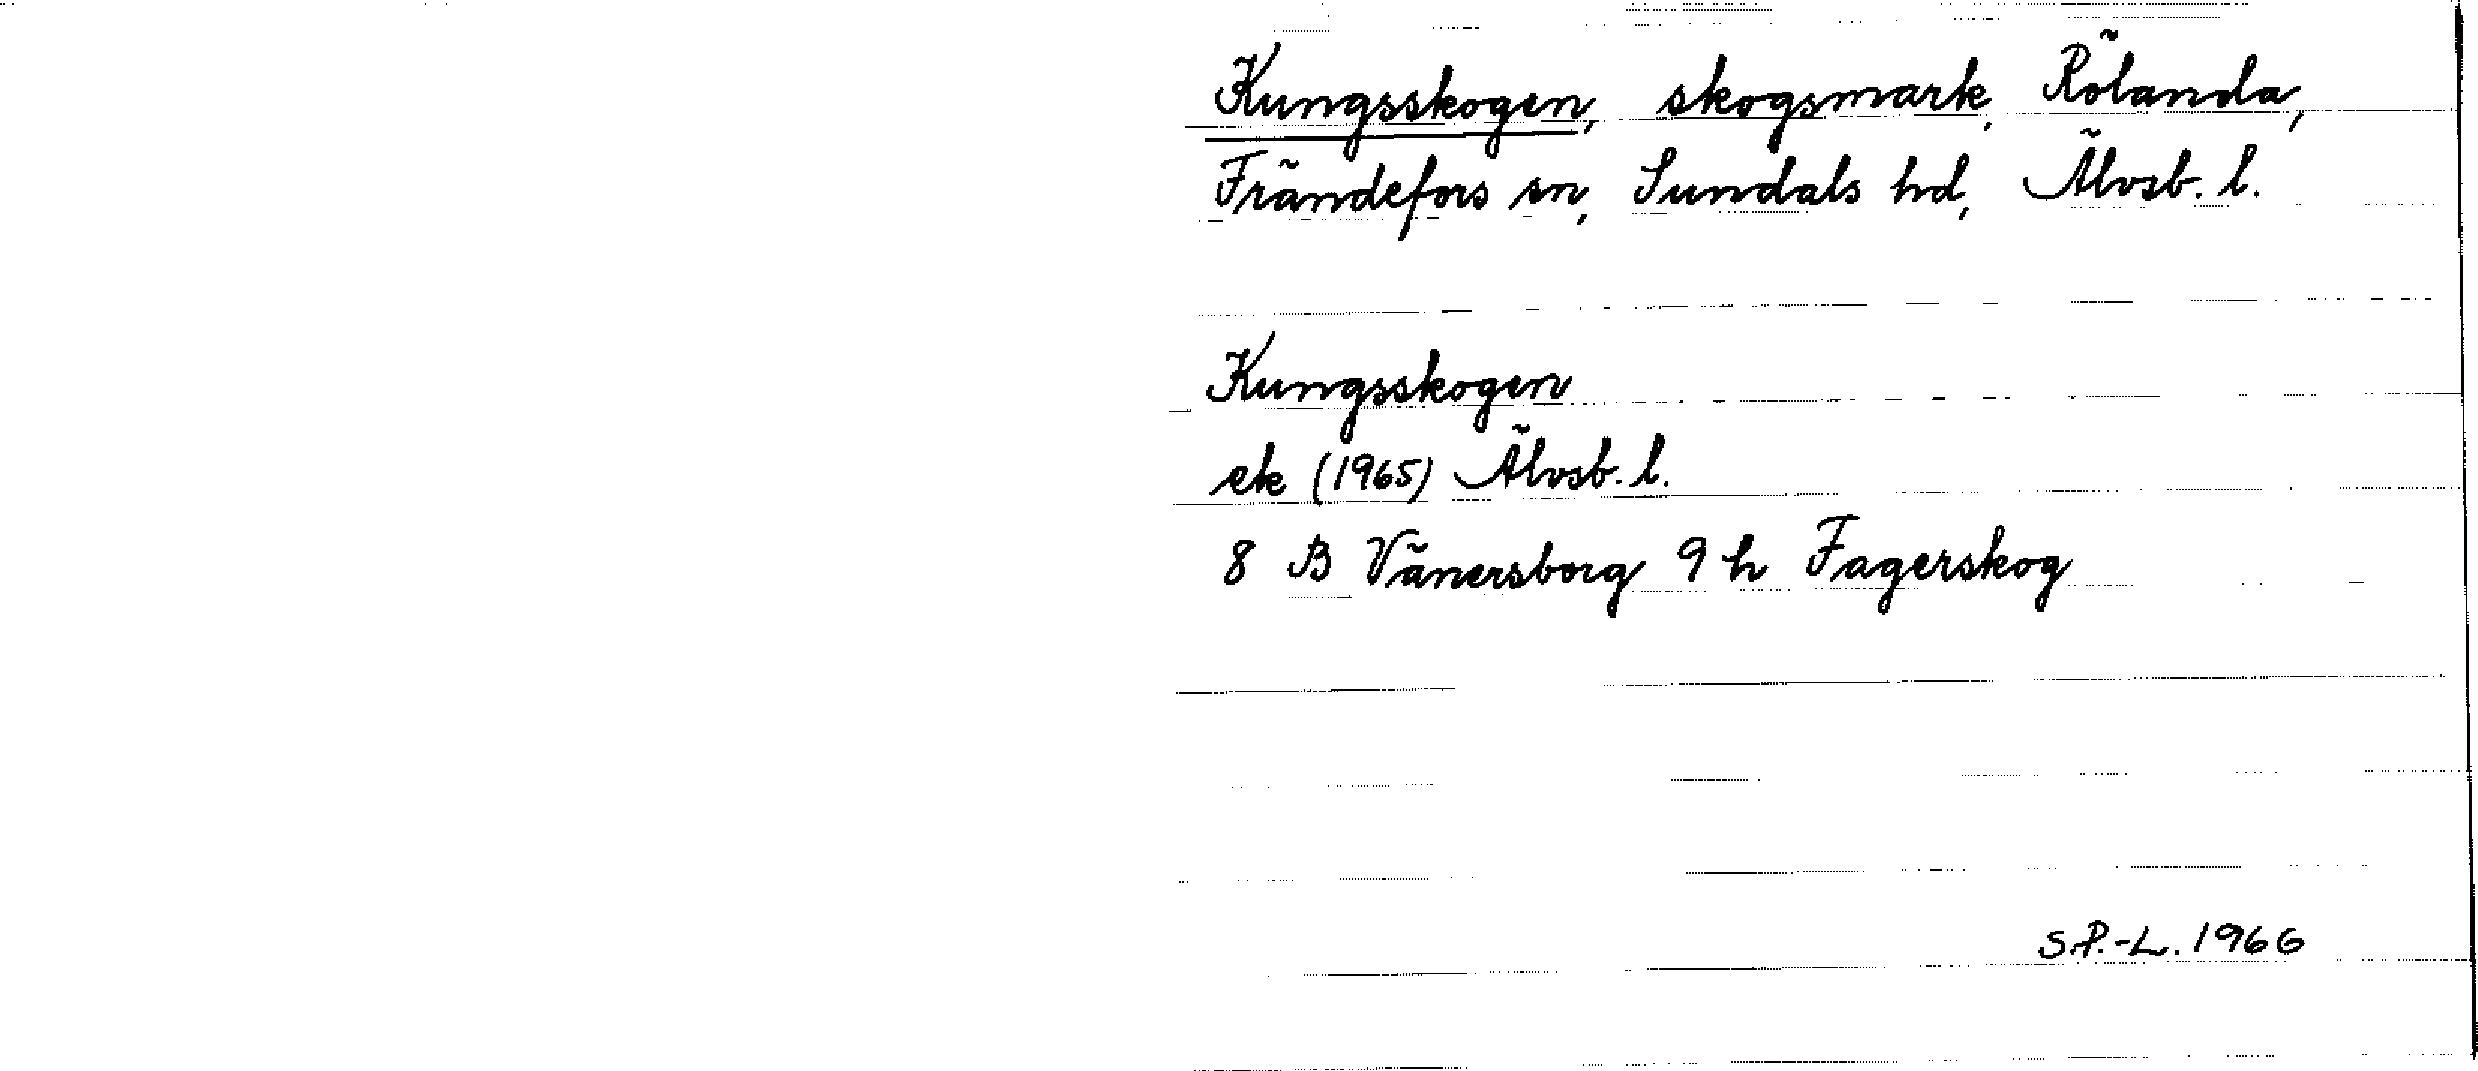 Kungsskogen, skogsmark, Rölanda,
Frändefors sn, Sundals hd, Älvsb. l.
Kungsskogen
ek (1965) Älvsb. l.
8 B Vänersborg 9 h Fagerskog
S.P.-L. 1966